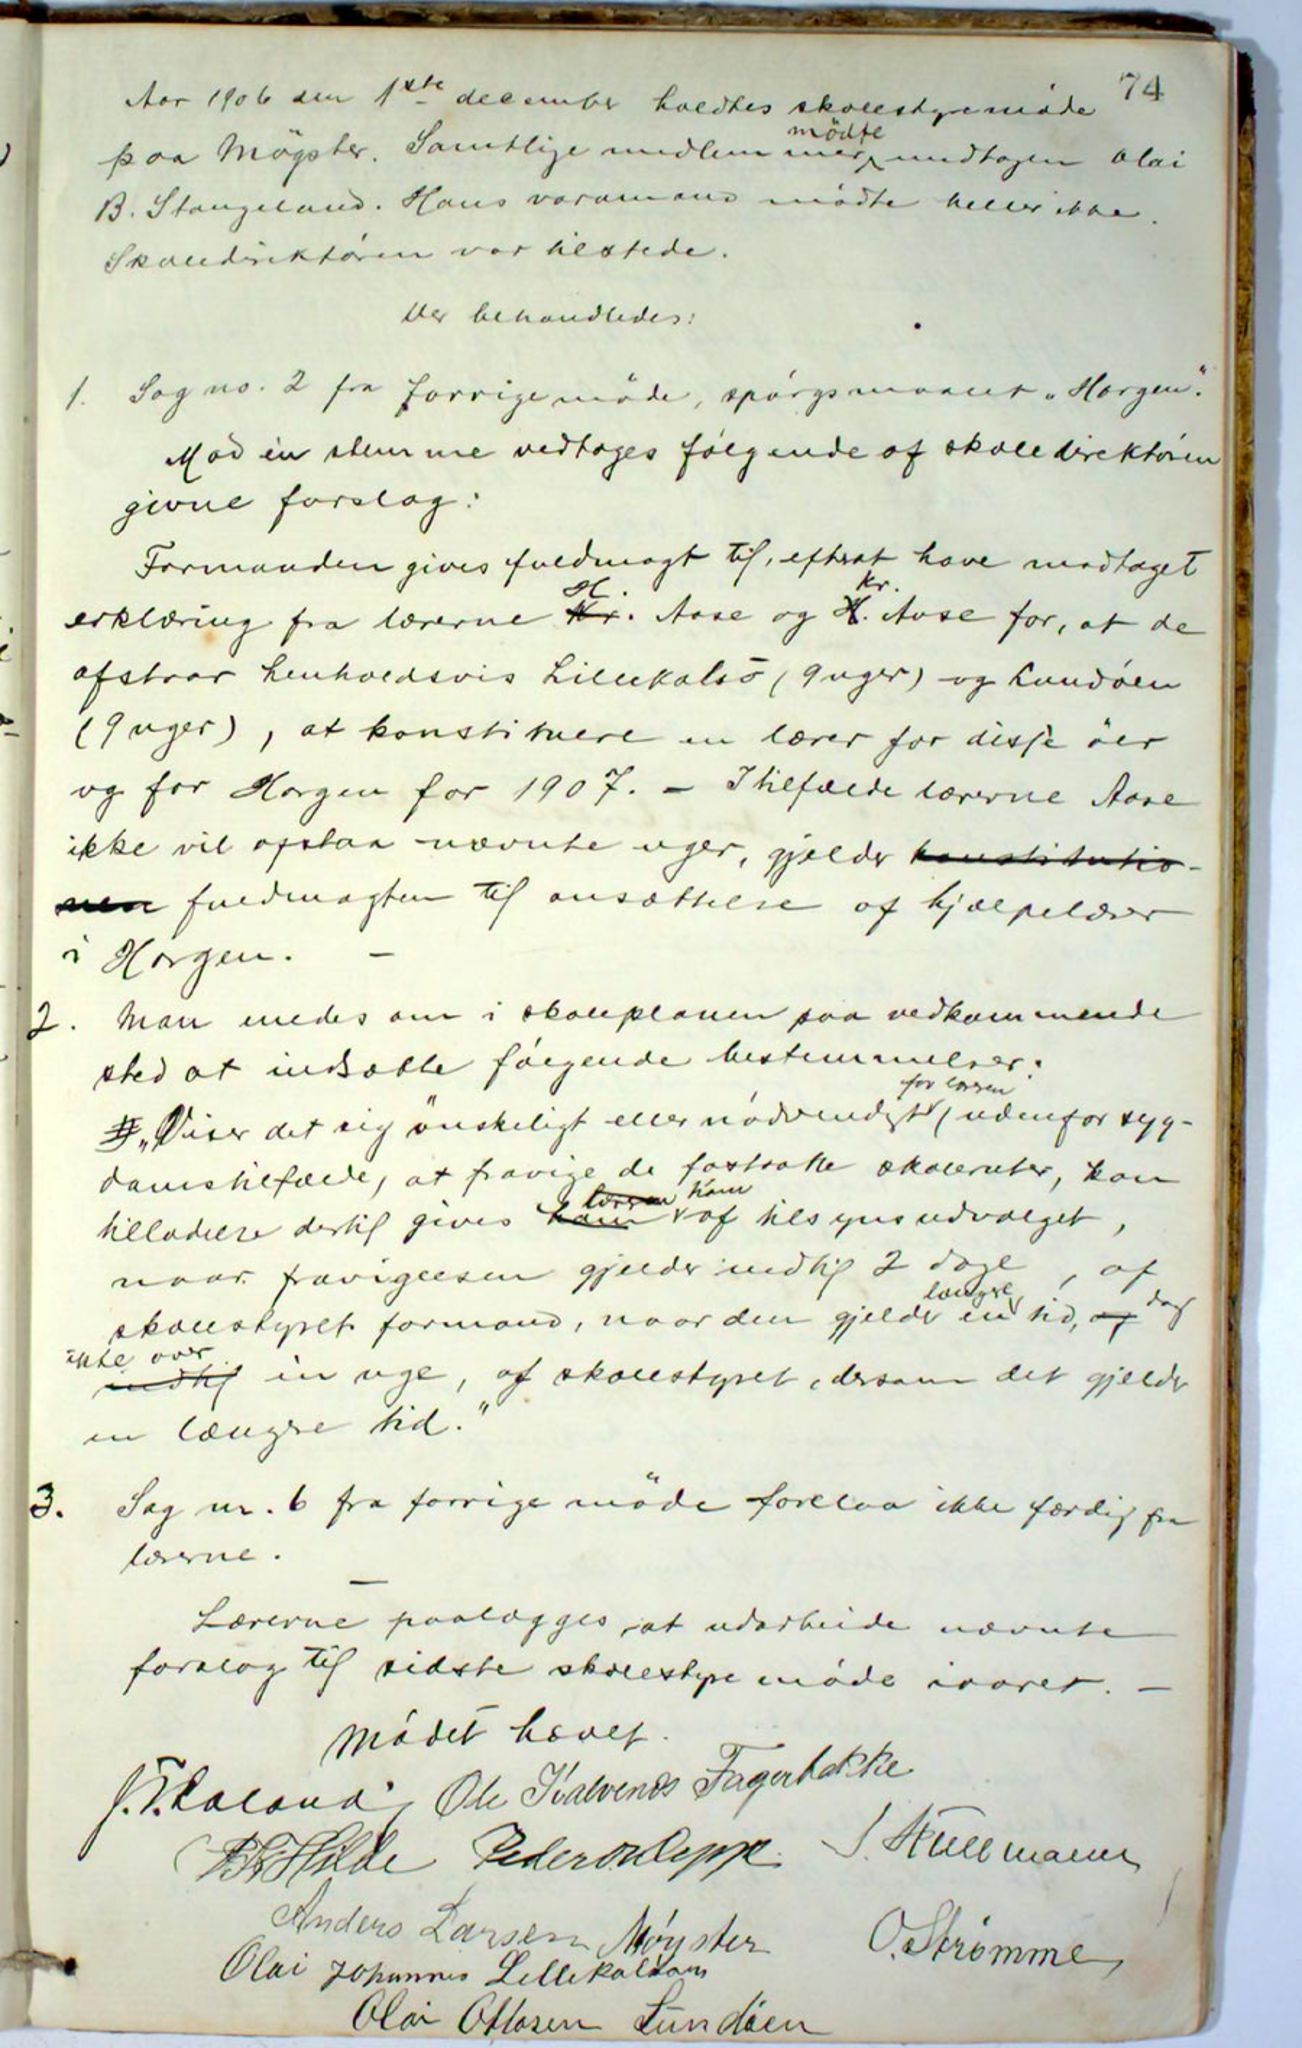 74
Aar 1906 den 1ste december holdtes skolestyremöde
paa Mögster. Samtlige medlemmer mödte undtagen Olai
B. Stangeland. Hans varamand mödte heller ikke.
Skoledirektören var tilstede.
Der behandledes:
1. Sag no. 2 fra forrige möde, spörgsmaalet „Horgen".
Mod en stemme vedtoges fölgende af skoledirektören
givne forslag:
Formanden gives fuldmagt til, efterat have modtaget
erklæring fra lærerne Kr. H. Aase og H. Kr. Aase for, at de
afstaar henholdsvis Lillekalsö (9 uger) og Lundöen
(9 uger), at konstituere en lærer for disse öer
og for Horgen for 1907. – I tilfælde lærerne Aase
ikke vil afstaa nævnte uger, gjelder konstitutio-
nen fuldmagten til ansættelse af hjælpelærer
i Horgen. –
2. Man enedes om i skoleplanen paa vedkommende
sted at indsætte fölgende bestemmelser:
„Viser det sig önskeligt eller nödvendigt for læreren (udenfor syg-
domstilfælde) at fravige de fastsatte skoleruter, kan
tilladelse dertil gives ham læreren ham af tilsynsudvalget,
naar fravigelsen gjelder indtil 2 dage, af
skolestyrets formand, naar den gjelder en længre tid, af dog
indtil ikke over en uge, af skolestyret, dersom det gjelder
en længere tid."
3. Sag nr. 6 fra forrige möde forelaa ikke færdig fra
lærerne.
–
Lærerne paalægges at udarbeide nævnte
forslag til sidste skolestyremöde iaaret. –
Mödet hævet.
J. T. Kaland, Ole Kalvenes Fagerbakke
Hilde Peder O. Kleppe J. Kullmann
Anders Larsen Möyster O. Strömme
Olai Johannes Lillekalsöen
Olai Ottosen Lundöen